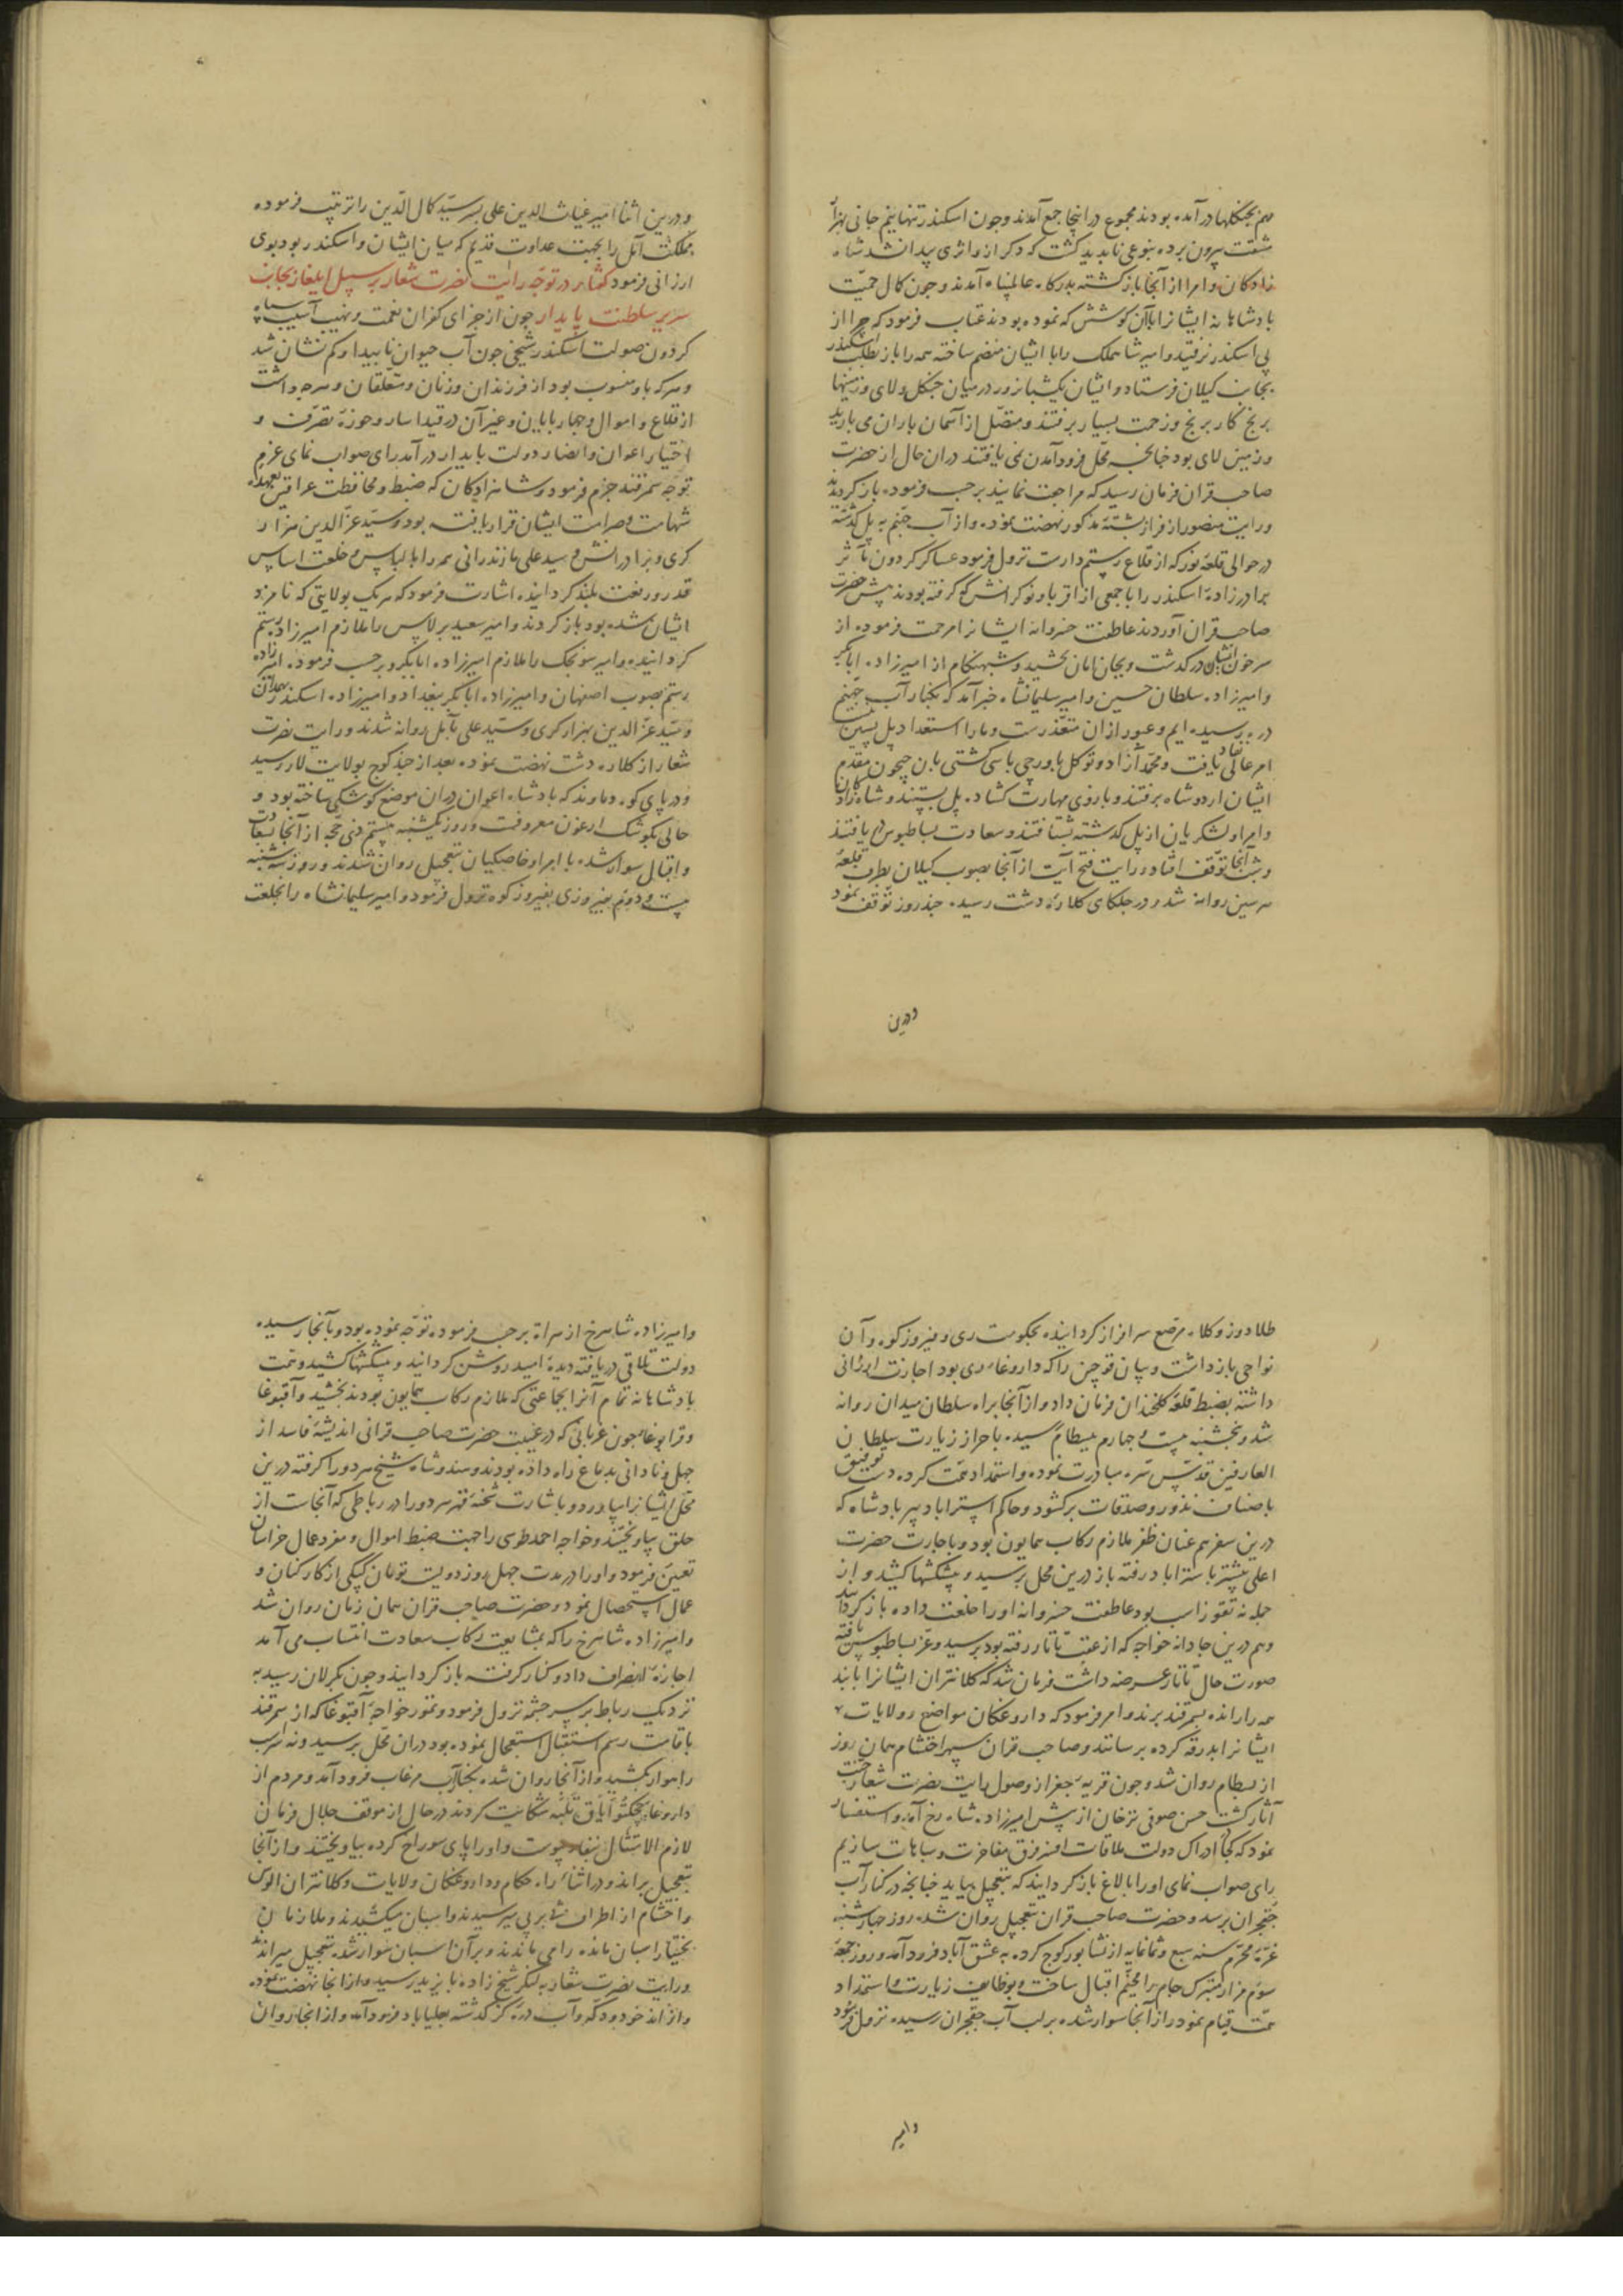 هم بجنگلها در آمده بودند مجموع در اینجا جمع آمدند و چون اسکندر تنها نیم جانی بهزار
مشقت بیرون برده بنوعی ناپدید کشت که دکر ازو اثری پیدا نشد شاه
زادکان و امرا از آنجا باز کشته بدرکاه عالمپناه آمدند و چون کمال حمیت
پادشاهانه ایشانرا با آن کوشش که نموده بودند عتاب فرمود که چرا از
پی اسکندر نرفتید و امیر شاهملک را با ایشان منضم ساخته همه را باز بطلب اسکندر
بجانب کیلان فرستاد و ایشان یکشبانروز در میان جنکل و لای و زمینها
برنج کار برنج و زحمت بسیار برفتند و متصل از آسمان باران می بارید
و زمین لای بود چنانجه محل فرود آمدن نمی یافتند در ان حال از حضرت
صاحب قران فرمان رسید که مراجعت نمایند برحسب فرموده باز کردیدند
و رایت منصور از فراز پشته مذکور نهضت نموده و از آب جهنم به پل کذشته
در حوالی قلعه نور که از قلاع رستمدارست نزول فرمود عساکر کردون مآثر
برادر زاده اسکندر را با جمعی از اقربا و نوکرانش که کرفته بودند پیش حضرت
صاحب قران آوردند عاطفت خسروانه ایشانرا مرحمت فرموده از
سر خون ایشان در کدشت و بجان امان بخشید و شبهنکام از امیرزاده ابابکر
و امیرزاده سلطان حسین و امیر سلیمانشاه خبر آمد که بکنار آب جهنم
در رسیده ایم و عبور ازان متعذرست و ما را استعداد پل بستن نیست
امر عالی نفاذ یافت و محمد آزاد و توکل باورچی با سی کشتی بان جیحون مقدم
ایشان اردوشاه برفتند و بازوی مهارت کشاده پل ببستند و شاه زادکان
و امرا و لشکریان از پل کدشته بشتافتند و سعادت بساطبوس در یافتند
و شب آنجا توقف افتاد و رایت فتح آیت از آنجا بصوب کیلان بطرف قلعه
هرسین روانه شد و در جلکای کلاره دشت رسیده چند روز توقف نمود
و درین
و درین اثنا امیر غیاث الدین علی پسر سید کمال الدین را تربیت فرموده
مملکت آمل را بجهت عداوت قدیم که میان ایشان و اسکندر بود بوی
ارزانی فرمود کفتار در توجه رایت نصرت شعار بر سبیل ایلغار بجانب
سریر سلطنت پایدار چون از جزای کفران نعمت و نهیب آسیب سپاه
کردون صولت اسکندر شیخی چون آب حیوان ناپیدا و کم نشان شد
و هرکه باو منسوب بود از فرزندان و زنان و متعلقان و هرچه داشت
از قلاع و اموال و چهارپایان و غیر آن در قید اسار و حوزه تصرف و
اختیار اعوان و انصار دولت پایدار در آمد رای صواب نمای عزم
توجه سمرقند جزم فرمود و شاهزادکان که ضبط و محافظت عراقین بعهده
شهامت و صرامت ایشان قرار یافته بود و سید عز الدین هزار
کری و برادرانش و سید علی مازندرانی همه را با لباس و خلعت اساس
قدر و رفعت بلند کردانیده اشارت فرمود که هریک بولایتی که نامزد
ایشان شده بود باز کردند و امیر سعید برلاس را ملازم امیرزاده رستم
کردانیده و امیر سونجک را ملازم امیرزاده ابابکر و برحسب فرموده امیرزاده
رستم بصوب اصفهان و امیرزاده ابابکر ببغداد و امیرزاده اسکندر بهمدان
و سید عز الدین بهزار کری و سید علی بآمل روانه شدند و رایت نصرت
شعار از کلاره دشت نهضت نموده بعد از چند کوچ بولایت لار رسید
و در پای کوه دماوند که پادشاه ارغون در ان موضع کوشکی ساخته بود و
حالی بکوشک ارغون معروفست و روز یکشنبه بیستم ذی حجه از آنجا بسعادت
و اقبال سوار شده با امرا و خاصکیان بتعجیل روان شدند و روز سه شنبه
بیست و دوم بفیروزی بفیروزکوه نزول فرمود و امیر سلیمانشاه را بخلعت
طلا دوز و کلاه مرصع سرافراز کردانیده بحکومت ری و فیروزکوه و آن
نواحی باز داشت و بیان قوچین را که داروغاء ری بود اجازت ارزانی
داشته بضبط قلعه کلخندان فرمان داد و از آنجا براه سلطان میدان روانه
شد و پنجشنبه بیست و چهارم ببسطام رسیده باحراز زیارت سلطان
العارفین قدس سره مبادرت نموده و استمداد همت کرده دست توفیق
باصناف نذور و صدقات برکشود و حاکم استراباد پیر پادشاه که
درین سفر هم عنان ظفر ملازم رکاب همایون بود و باجازت حضرت
اعلی پیشتر باستراباد رفته باز درین محل برسید و پیشکشها کشید و از
جمله نه تقوز اسب بود عاطفت خسروانه او را خلعت داده باز کردانید
و هم درین جا دانه خواجه که از عقب تاتار رفته بود برسید و عز بساطبوس یافته
صورت حال تاتار عرضه داشت فرمان شد که کلانتران ایشانرا بابند
همه را رانده بسمرقند برند و امر فرمود که داروغکان مواضع و ولایات
ایشانرا بدرقه کرده برسانند و صاحب قران سپهر احتشام همان روز
از بسطام روان شد و چون قریه جغز از وصول رایت نصرت شعار جنت
آثار کشت حسن صوفی ترخان از پیش امیرزاده شاه رخ آمد و استفسار
نمود که کجا ادراک دولت ملاقات افسر فرق مفاخرت و مباهات سازیم
رای صواب نمای او را بالاغ باز کردانید که بتعجیل بیاید چنانجه در کنار آب
جقجران برسد و حضرت صاحب قران بتعجیل روان شده روز چهارشنبه
غره محرم سنه سبع و ثمانمایه از نشابور کوچ کرده به عشق آباد فرود آمد و روز جمعه
سوم مزار متبرک جام را مخیم اقبال ساخت و بوظایف زیارت و استمداد
همت قیام نمود و از آنجا سوار شده بر لب آب جقجران رسیده نزول فرمود
و امیر
و امیرزاده شاهرخ از هراة برحسب فرموده توجه نموده بود و بآنجا رسیده
دولت تلاقی دریافته دیده امید روشن کردانید و پیشکشها کشید و همت
پادشاهانه تمام آنرا بجماعتی که ملازم رکاب همایون بودند بخشید و آقبوغا
و قرابوغا جون غربانی که در غیبت حضرت صاحب قرانی اندیشه فاسد از
جهل و نادانی بدماغ راه داده بودند و هندوشاه شیخ هر دو را کرفته درین
محل ایشانرا بیاورد و باشارت شحنه قهر هر دو را در رباطی که آنجاست از
حلق بیاویختند و خواجه احمد طوسی را جهت ضبط اموال و مفرد عمال خراسان
تعیین فرمود و او را در مدت چهل روز دویست تومان کپکی از کارکنان و
عمال استحصال نمود و حضرت صاحب قران همان زمان روان شد
و امیرزاده شاهرخ را که بمشایعت رکاب سعادت انتساب می آمد
اجازه انصراف داد و کنار کرفته باز کردانید و چون بکرلان رسید به
نزدیک رباط بر سر چشمه نزول فرمود و تمور خواجه آقبوغا که از سمرقند
باقامت رسم استقبال استعجال نموده بود در ان محل برسید و نه اسب
راهوار بکشید و از آنجا روان شده بکنار آب مرغاب فرود آمد و مردم از
داروغاء چیچکتو ایاق تلبه شکایت کردند در حال از موقف جلال فرمان
لازم الامتثال بنفاذ پیوست و او را پای سوراخ کرده بیاویختند و از آنجا
بتعجیل براند و در اثناء راه حکام و داروغکان ولایات و کلانتران الوس
و احشام از اطراف پی در پی میرسیدند و اسبان میکشیدند و ملازمان
بختیار اسبان مانده را می ماندند و بر آن اسبان سوار شده بتعجیل میراندند
و رایت نصرت شعار به لنکر شیخ زاده بایزید رسید و از انجا نهضت نموده
و از اندخود و دکه و آب دره کز کدشته بعلیاباد فرود آمد و از انجا روان